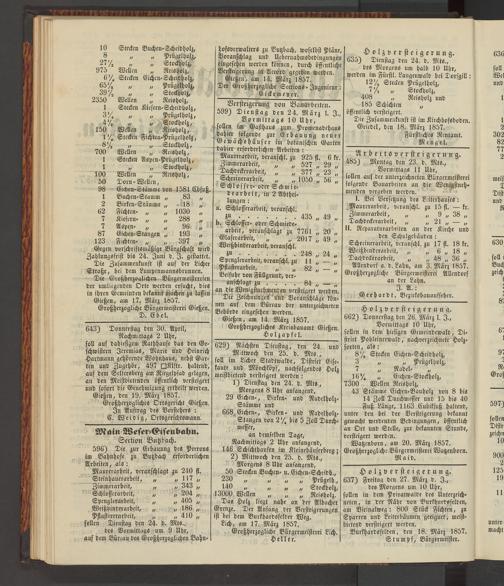 10 Stecken Buchen-Scheidholz,
8 " " Prügelholz,
27½ " " Stockholz,
975 Wellen " Reisholz,
6½ Stecken Eichen-Scheidholz,
65½ " " Prügelholz,
39½ " " Stockholz,
2350 Wellen " Reisholz,
1 Stecken Kiefern-Scheidholz,
3½ " " Prügelholz,
4½ " " Stockholz,
150 Wellen " Reisholz,
1½ Stecken Fichten-Prügelholz,
8½ " " Stockholz,
700 Wellen " Reisholz,
1 Stecken Aspen-Prügelholz,
" " Stockholz,
100 Wellen " Reisholz,
50 Dorn-Wellen,
98 Eichen-Stämme von 1581 Cbkfß.
1 Buchen-Stamm " 83 "
2 Birken-Stämme " 18 "
62 Fichten- " " 1030 "
7 Kiefern- " " 288 "
7 Aspen- " " 96 "
87 Eichen-Stangen " 193 "
123 Fichten- " " 397 "
Gegen vorschriftsmäßige Bürgschaft wird
Zahlungsfrist bis 24. Juni d. J. gestattet.
Die Zusammenkunft ist auf der Licher
Straße, bei dem Lumpenmannsbrunnen.
Die Großherzoglichen Bürgermeistereien
der umliegenden Orte werden ersucht, dies
in ihren Gemeinden bekannt machen zu lassen
Gießen, am 17. März 1857.
Großherzogliche Bürgermeisterei Gießen.
D. Ebel.
643) Donnerstag den 30. April,
Nachmittags 2 Uhr,
soll auf dahiesigem Rathhause das den Ge-
schwistern Jeremias, Marie und Heinrich
Hartmann gehörige Wohnhaus, nebst Gar-
ten und Zugehör, 497 □Klftr. haltend,
auf dem Seltersberg am Riegelpfad gelegen,
an den Meistbietenden öffentlich versteigert
und sofort die Genehmigung ertheilt werden.
Gießen, den 19. März 1857.
Großherzogliches Ortsgericht Gießen.
In Auftrag des Vorstehers:
C. Weidig, Ortsgerichtsmann.
Main Weser-Eisenbahn.
Section Butzbach.
596) Die zur Erbauung des Perrons
im Bahnhofe zu Butzbach erforderlichen
Arbeiten, als:
Maurerarbeit, veranschlagt zu 240 fl.
Steinhauerarbeit " " 117 "
Zimmerarbeit, " " 343 "
Schlosserarbeit " " 204 "
Spenglerarbeit " " 405 "
Weißbinderarbeit, " " 186 "
Pflasterarbeit " " 410 "
sollen Dienstag den 24. d. Mts.
des Vormittags um 9 Uhr,
auf dem Büreau des Großherzoglichen Bahn-
hofsverwalters zu Butzbach, woselbst Pläne,
Voranschlag und Uebernahmsbedingungen
eingesehen werden können, durch öffentliche
Versteigerung in Accord gegeben werden.
Gießen, am 14. März 1857.
Der Großherzogliche Sections-Ingenieur:
Dickemeyer.
Versteigerung von Bauarbeiten.
599) Dienstag den 24. März l. J.,
Vormittags 10 Uhr,
sollen im Gasthaus zum Promenadehaus
dahier folgende zur Erbauung einer
Gewächshäuser im botanischen Garten
dahier erforderlichen Arbeiten:
Maurerarbeit, veranschl. zu 925 fl. 6 fr.
Zimmerarbeit, " " 527 " 29 "
Dachdeckerarbeit, " " 377 " 23 "
Schreinerarbeit, " " 1050 " 56 "
Schlosser- oder Schmie-
dearbeit, in 2 Abthei-
lungen:
a. Schlosserarbeit, veranschl.
zu . . . . . . 435 " 49 "
b. Schlosser- oder Schmiede-
arbeit, veranschlagt zu 7761 " 20 "
Glaserarbeit, " " 2017 " 49 "
Weißbinderarbeit, veranschl.
zu . . . . . . 248 " 24 "
Spenglerarbeit, veranschl. zu 11 " — "
Pflasterarbeit, " " 82 " — "
Beifuhr von Füllgrund, ver-
anschlagt zu . . . . 84 " — "
an die Wenigstnehmenden versteigert werden.
Die Zeichnungen und Voranschläge kön-
nen auf dem Büreau der unterzeichneten
Behörde eingesehen werden.
Gießen, am 14. März 1857.
Großherzogliches Kreisbauamt Gießen.
Holzapfel.
629) Nächsten Dienstag, den 24. und
Mittwoch den 25. d. Mts.,
soll in Licher Stadtwalde, District Eis-
kaute und Mönchkopf, nachfolgendes Holz
meistbietend versteigert werden:
1) Dienstag den 24. d. Mts.,
Morgens 8 Uhr anfangend,
29 Eichen-, Birken- und Nadelholz-
Stämme und
668 Eichen-, Birken- und Nadelholz-
Stangen von 2½ bis 5 Zoll Durch-
messer,
an demselben Tage,
Nachmittags 2 Uhr anfangend,
146 Schichthaufen im Kleinerhäuserberg;
2) Mittwoch den 25. d. Mts.,
Morgens 8 Uhr anfangend,
50 Stecken Buchen- u. Eichen-Scheidh.,
230 " " " Prügelh.,
140 " " " Stockholz,
13000 Wellen " " Reisholz.
Das Holz liegt nahe an der Albacher
Grenze. Der Anfang der Versteigerung
ist bei dem Burkhardsfelder Weg.
Lich, am 17. März 1857.
Großherzogliche Bürgermeisterei Lich.
Heller.
Holzversteigerung.
635) Dienstag den 24. d. Mts.,
des Morgens um halb 10 Uhr,
werden im Fürstl. Langenwald bei Dorfgill:
12½ Stecken Prügel-
7½ " Stockholz,
408 Reisholz und
185 Schichten
öffentlich versteigert.
Die Zusammenkunft ist im Kirchhofsboden.
Griedel, den 18. März 1857.
Fürstliches Rentamt.
Mengel.
Arbeitsversteigerung.
485) Montag den 23. d. Mts.,
Vormittags 11 Uhr,
sollen auf der unterzeichneten Bürgermeisterei
folgende Bauarbeiten an die Wenigstneh-
menden vergeben werden.
I. Bei Versetzung des Leiterhauses:
Maurerarbeit, veranschl. zu 15 fl. — fr.
Zimmerarbeit, " " 9 " 38 "
Dachdeckerarbeit " " 21 " — "
II. Reparaturarbeiten an der Kirche und
den Schulgebäuden:
Schreinerarbeit, veranschl. zu 17 fl. 18 fr.
Weißbinderarbeit " " 6 " 18 "
Dachdeckerarbeit, " " 48 " 36 "
Allendorf a. d. Lahn, am 3. März 1857.
Großherzogliche Bürgermeisterei Allendorf
an der Lahn.
J. A.:
Gerhardt, Bezirksbauaufseher.
Holzversteigerung.
662) Donnerstag den 26. März l. J.,
Vormittags 10 Uhr,
sollen in dem hiesigen Gemeindewald, Di-
strict Pohleinerwald, nachverzeichnete Holz-
sorten, als:
8½ Stecken Eichen-Scheidholz,
3 " " Prügelholz,
7 " Nadel- "
16½ " Eichen-Stockholz,
7300 Wellen " Reisholz,
43 Stämme Eichen-Bauholz von 8 bis
14 Zoll Durchmesser und 15 bis 40
Fuß Länge, 1163 Cubikfuß haltend,
unter den bei der Versteigerung bekannt
gemacht werdenden Bedingungen, öffentlich
an Ort und Stelle, zur bekannten Stunde,
versteigert werden.
Watzenborn, am 20. März 1857.
Großherzogliche Bürgermeisterei Watzenborn.
Holzversteigerung.
637) Freitag den 27. März d. J.,
des Morgens um 10 Uhr,
sollen in dem Privatwalde des Unterzeich-
neten, in der Nähe von Burkhardsfelden,
am Wiesenweg: 800 Stück Fichten, zu
Sparren und Leiterbäumen geeignet, meist-
bietend versteigert werden.
Burkhardsfelden, den 18. März 1857.
Stumpf, Bürgermeister.